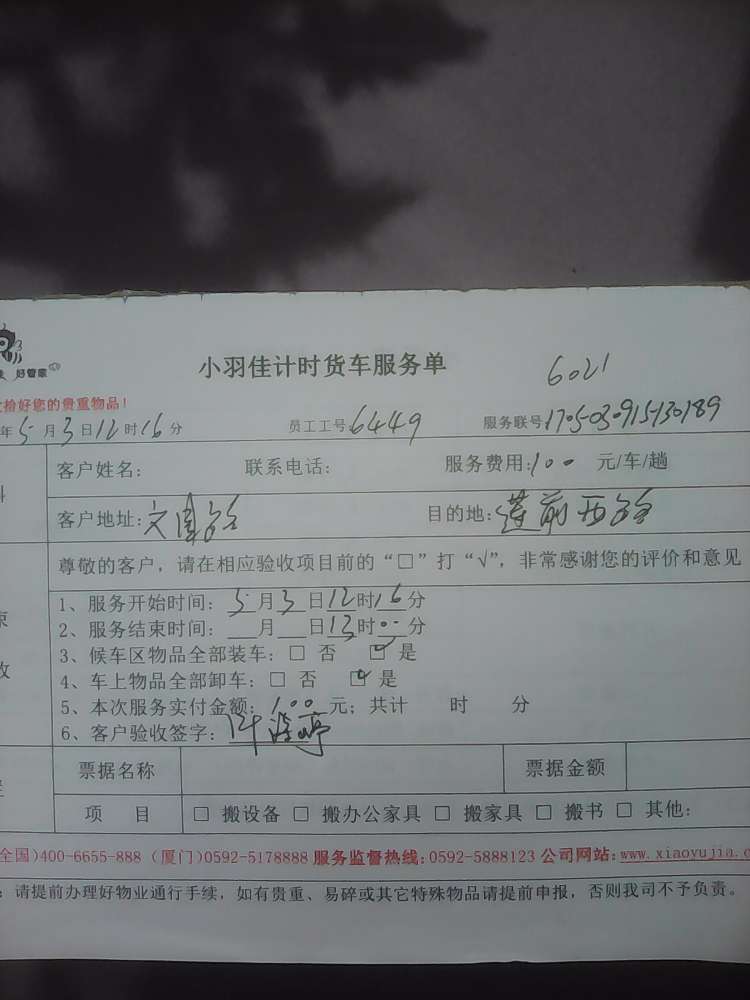 小羽佳计时货车服务单
6021
好管家
捡好您的贵重物品！
年5月3日12时16分 员工工号6449 服务联号1705030915130189
客户姓名： 联系电话： 服务费用：100 元/车/趟
客户地址：文园路 目的地：莲前西路
尊敬的客户，请在相应验收项目前的“□”打“√”，非常感谢您的评价和意见
1、服务开始时间：5月3日12时16分
2、服务结束时间：___月___日13时00分
3、候车区物品全部装车：□ 否 ☑ 是
4、车上物品全部卸车：□ 否 ☑ 是
5、本次服务实付金额：100元；共计 时 分
6、客户验收签字：
票据名称 票据金额
项 目 □ 搬设备 □ 搬办公家具 □ 搬家具 □ 搬书 □ 其他：
全国)400-6655-888 (厦门)0592-5178888 服务监督热线：0592-5888123 公司网站：www.xiaoyujia.c
：请提前办理好物业通行手续，如有贵重、易碎或其它特殊物品请提前申报，否则我司不予负责。